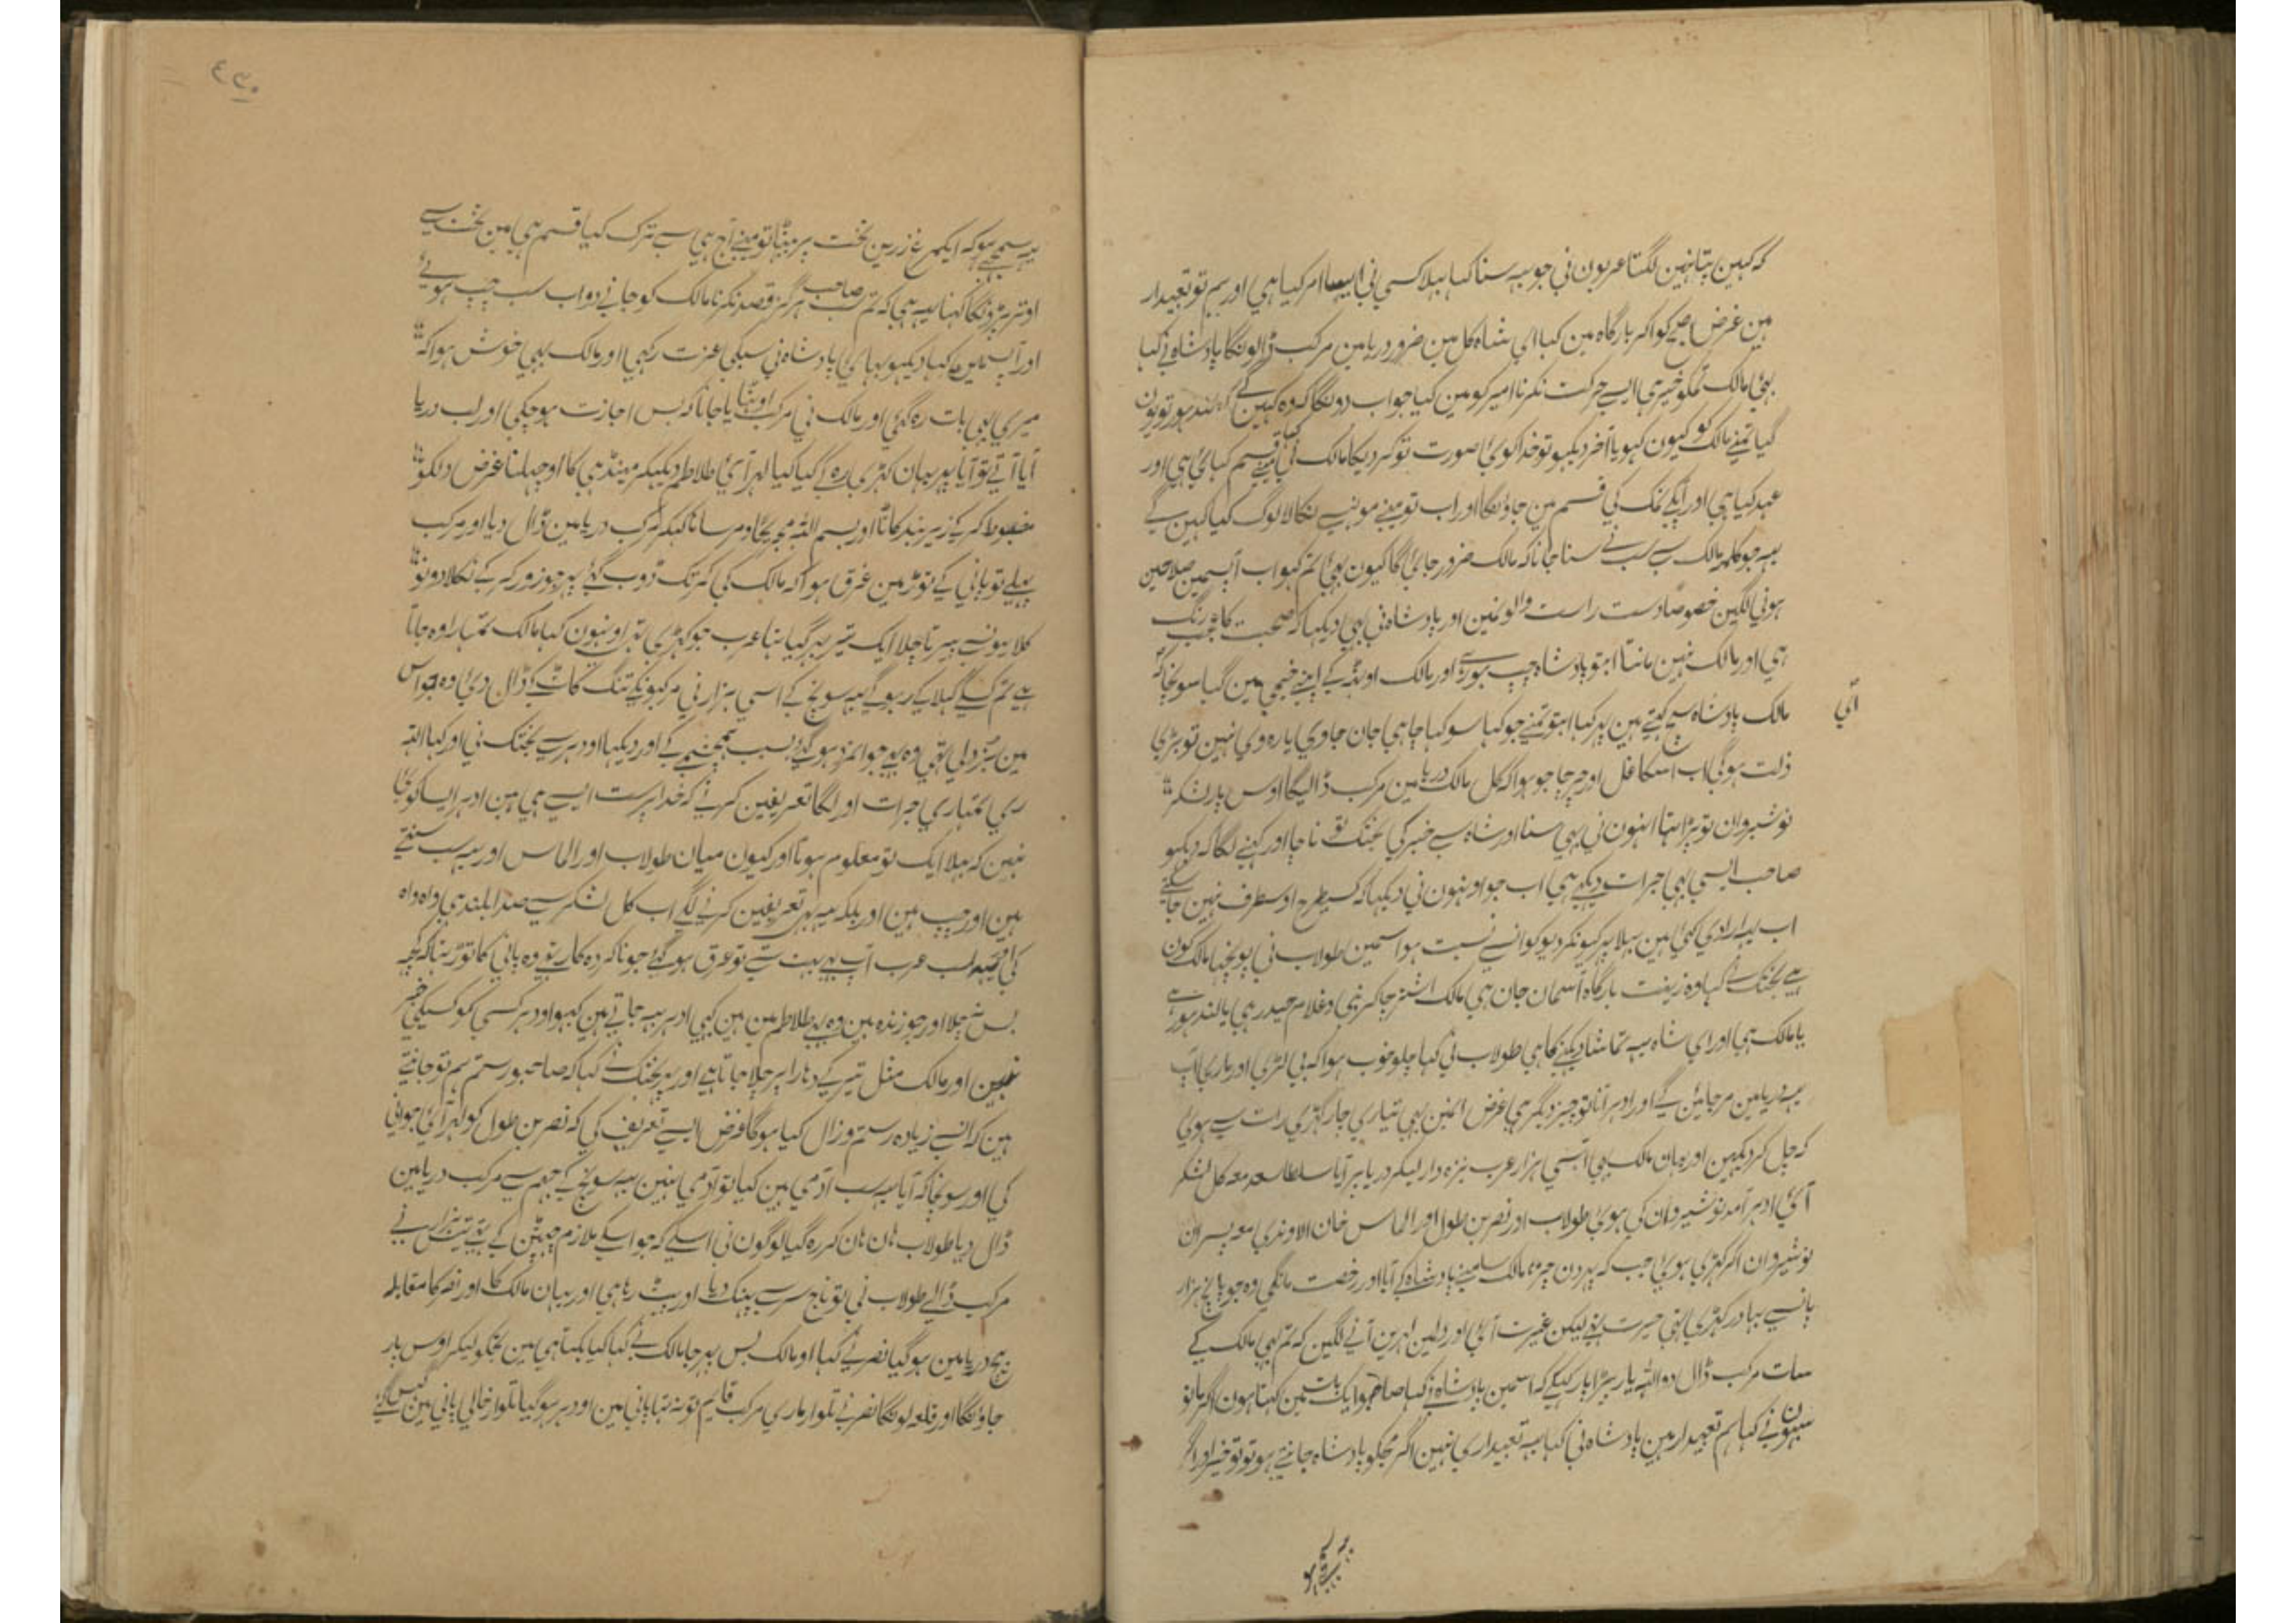 کہ کہین پتا نہین لگتا عربون نی جو یہہ سنا کہا بہلا کسی نی ایسا امر کیا ہی اور ہم تو تعبدار
ہین غرض صبح کو اکر بارگاہ مین کہا ای شاہ کل مین ضرور دریا مین مرکب ڈالونگا پادشاہ نی کہا
بہئی مالک تمکو خیر ہی ایسے حرکت نکرنا امیر کو مین کیا جواب دونگا کہ وہ کہین گے کہ لندہور تو یون
گیا تمنے مالک کو کیون کہویا آخر دیکہو تو خدا کوئی صورت تو کر دیگا مالک نی کہا مینے قسم کہائی ہی اور
عہد کیا ہی اور آپکے نمک کی قسم مین جاونگا اور اب تو مینے مونہہ سے نکالا لوگ کیا کہین گے
یہہ جو کلمہ مالک سے سب نے سنا جانا کہ مالک ضرور جائیگا کیون بہئی تم کہو اب آپسمین صلاحین
ہونی لگین خصوصاً دست راست والونمین اور پادشاہ نی بہی دیکہا کہ صحبت کا عجب رنگ
ہی اور مالک نہین مانتا ابتو پادشاہ چپ ہو رہے اور مالک اوٹہہ کے اپنے خیمی مین گیا سونچا کہ
آئی
مالک پادشاہ سے کہتے ہین پر کیا ابتو تمنے جو کہا سو کہا چاہی جان جاوی یا رہ وی نہین تو بڑی
ذلت ہوگی اب اسکا غل اور چرچا جو ہوا کہ کل مالک دریا مین مرکب ڈالیگا اوس پار لشکر
نوشیروان تو پڑا ہتا اونہون نی بہی سنا اور شاہ سے خبر کی بختک نے ناچا اور کہنے لگا کہ دیکہو
صاحب ایسی بہی جرات دیکہے ہی اب جو اونہون نی دیکہا کہ کسیطرح اوسطرف نہین جا سکتے
اب یہہ ارادی کئی ہین بہلا پہر کیونکر دیو کو انسے نسبت ہو اسمین طولاب نی پوچہا مالک کون
ہے بختک نے کہا وہ زینت بارگاہ آسمان جان ہی مالک اشتر چاکر نبی و غلام حیدر ہی یا لندہور ہے
یا مالک ہی اور ای شاہ یہہ تماشا دیکہنے کا ہی طولاب نی کہا چلو خوب ہوا کہ بی لڑی اور ماری آپ
یہہ دریا مین مر جائین گے اور ادہر آنا تو چیز دیگر ہی غرض انمین بہی تیاری چار گہڑی رات سے ہوئی
کہ چل کر دیکہین اور وہان مالک بہی اسی ہزار عرب نیزہ دار لیکر دریا پر آیا سلطان سعد معہ کل لشکر
آئی ادہر آمد نوشیروان کی ہوئی طولاب اور نصر بن طول اور الماس خان الاوندی معہ پسران
نوشیروان اکر کہڑی ہوئی جب کہ پہر دن چڑہا مالک سامنے پادشاہ کے آیا اور رخصت مانگی وہ جو پانچ ہزار
پانسے بہادر کہڑی تہی حیرت تہی لیکن غیرت آئی اور دلمین لہرین آنے لگین کہ تم بہی مالک کے
سات مرکب ڈال دو اللہ یار بیڑا پار کہکے کہ اسمین پادشاہ نے کہا صاحبو ایک بات مین کہتا ہون اگر مانو
سبہون نے کہا ہم تعبدار ہین پادشاہ نی کہا یہہ تعبداری نہین اگر مجکو پادشاہ جانتے ہو تو تو خیر اور اگر
یہہ سمجہتے ہو کہ ایکمرغ زرین تخت پر بیٹہا تو مینے آج ہی سے ترک کیا قسم ہی مین تخت سے
اوتر پڑونگا کہنا یہہ ہی کہ تم سب صاحب ہرگز قصد نکرنا مالک کو جانے دو اب سب چپ ہوئے
اور آپسمین کہا دیکہو بہائی پادشاہ نی سبکی عزت رکہی اور مالک بہی خوش ہوا کہ
میری بہی بات رہ گئی اور مالک نی مرکب اوٹہایا جانا کہ بس اجازت ہوچکی اور لب دریا
آیا آتے تو آیا پر یہان کہڑی رہ کے گیا کیا لہر آئی طلاطم دیکہکر مینڈہی کا اوچہلنا غرض دلکو
مضبوط کر کے زیر بند کاٹا اور بسم اللہ مجریہا و مرسٰہا کہکر مرکب دریا مین ڈال دیا اور مرکب
پہلے تو پانی کے توڑ مین غرق ہوا کہ مالک کی کمر تک ڈوب گئے پہر جو زور کر کے نکلا دونو
کلائیونسے پیرتا چلا ایک تیر پہر گیا ہتا عرب جو کہڑی تہی اونہون کہا مالک تمہارا وہ جاتا
ہے تم کسکے کہلا کے رہوگے یہہ سونچ کے اسی ہزار نی مرکبونکے تنگ کاٹ کے ڈال دئی وہ جو اس
مین بزدلی تہی وہ بہی جوانمرد ہو گئی سبب جہنم کے اور دیکہا اودہر سے بختک نی اور کہا اللہ
ری تمہاری جرات اور لگا تعریفین کرنے کہ خدا پرست ایسے ہی ہین ادہر ایسا کوئی
نہین کہ بہلا ایک تو معلوم ہوتا اور کیون میان طولاب اور الماس اور یہہ سب سنتے
ہین اور چپ ہین اور بلکہ یہہ بہی تعریفین کرنے لگے اب کل لشکر سے صدا بلند ہی واہ واہ
کی القصہ اب عرب آپ بہی بہت سے تو غرق ہو گئے جو ناکردہ کار تہے وہ پانی کا توڑ ہتا کہ کچہ
بس نچلا اور جو زندہ ہین وہ بہی طلاطم مین ہین کبہی ادہر بہہ جاتے ہین کبہو اودہر کسی کو کسیکی خبر
نہین اور مالک مثل تیر کے دہارا پر چلا جاتا ہے اور پہر بختک نے کہا کہ صاحبو رستم ہم تو جانتے
ہین کہ انسے زیادہ رستم و زال کیا ہوگا غرض ایسے تعریف کی کہ نصر بن طول کو لہر آئی جوانی
کی اور سونچا کہ آیا یہہ سب آدمی ہین کیا تو آدمی نہین یہہ سونچ کے جہم سے مرکب دریا مین
ڈال دیا طولاب ہان ہان کر رہ گیا لوگون نی اسکے کہ جو اسکے ملازم
مرکب ڈالے طولاب نی تو تاج سر سے پہینک دیا اور پیٹ رہا ہی اور یہان مالک کا اور نصر کا مقابلہ
بیچ دریا مین ہو گیا نصر نے کہا او مالک بس پہر جا مالک نے کہا کیا بکتا ہی مین تجکو لیکر اوس پار
جاونگا اور قلعہ لونگا نصر نے تلوار ماری مرکب قایم تو نہ تہا پانی مین اودہر ہو گیا تلوار خالی پانی مین